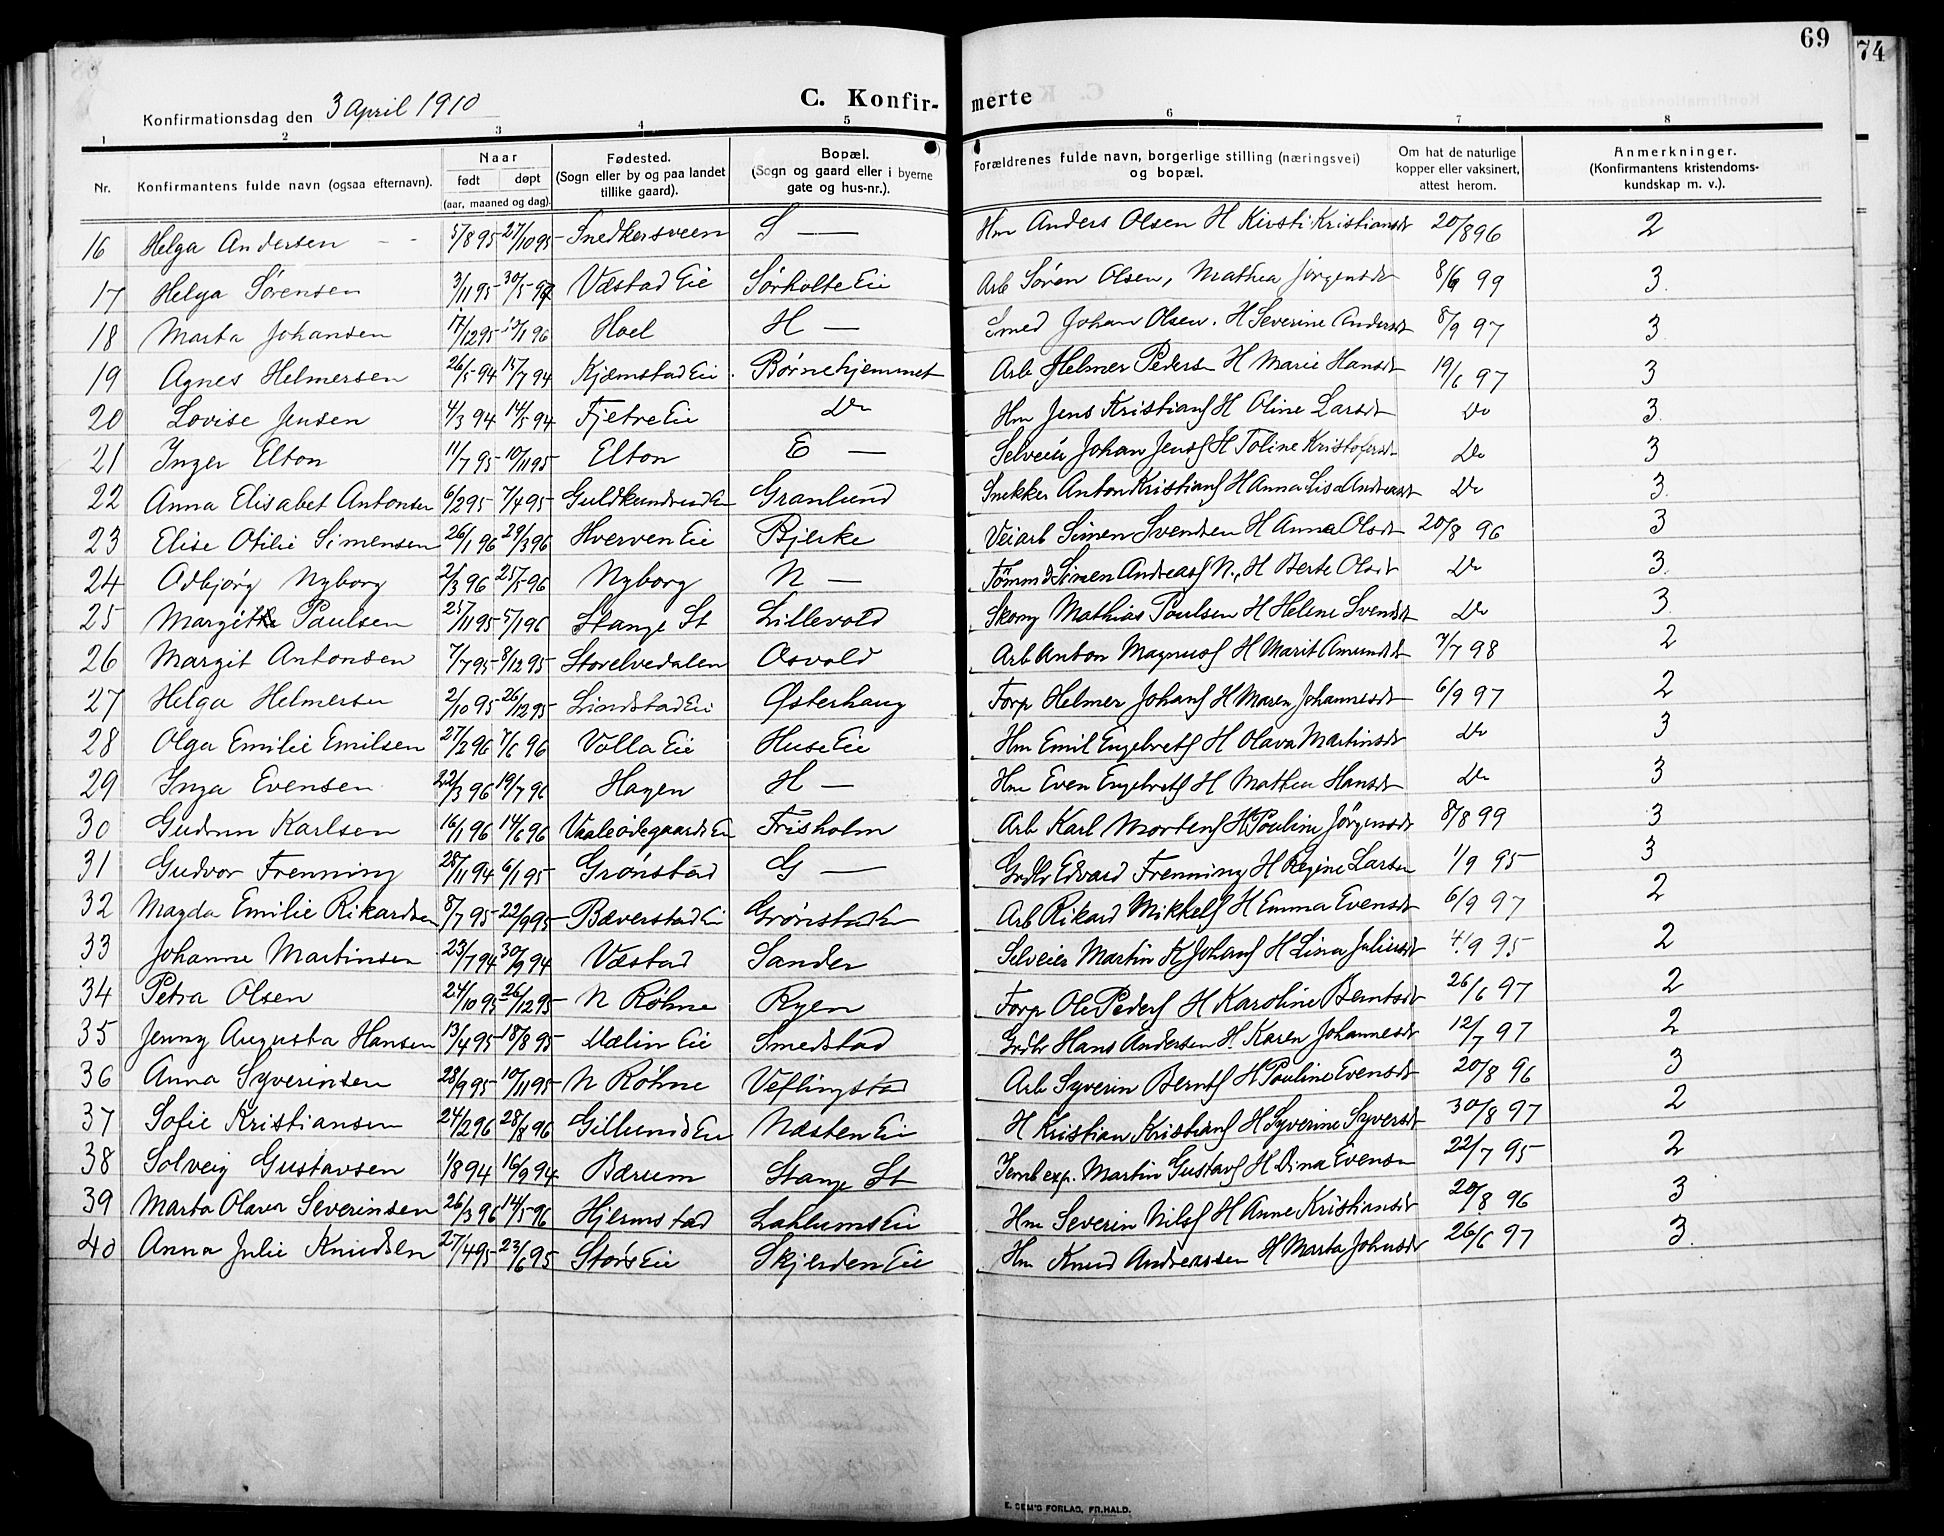 69
74
Konfirmationsdag den 3 April 1910
C. Konfir- merte
1 2 3 4 5 6 7 8
Nr. Konfirmantens fulde navn (ogsaa efternavn). Naar født døpt (aar, maaned og dag). Fødested. (Sogn eller by og paa landet tillike gaard). Bopæl. (Sogn og gaard eller i byerne gate og hus-nr.). Forældrenes fulde navn, borgerlige stilling (næringsvei) og bopæl. Om hat de naturlige kopper eller vaksinert, attest herom. Anmerkninger. (Konfirmantens kristendomskundskap m. v.).
16 Helga Andersen - - 5/8 95 27/10 95 Snedkersveen S — Hm Anders Olsen H Kirsti Kristiansdt 20/8 96 2
17 Helga Sørensen 3/11 95 30/5 97 Væstad Eie Sørholte Eie Arb Søren Olsen, Mathea Jørgensdt 8/6 99 3.
18 Marta Johansen 17/12 95 1/96 Hoel H — Smed Johan Olsen. H Severine Andersdt 8/9 97 3
19 Agnes Helmersen 26/5 94 15/7 94 Kjæmstad Eie Børnehjemmet Arb Helmer Pedersn H Marie Hansdt 19/6 97 3
20 Lovise Jensen 4/3 94 14/5 94 Fjetre Eie Do Hm Jens Kristians H Oline Larsdt Do 3.
21 Inger Elton 11/7 95 10/11 95 Elton E — Selveier Johan Jens H Toline Kristofersdt Do 3
22 Anna Elisabet Antonsen 6/2 95 7/4 95 Guldkundrud Ei Granlund Snekker Anton Kristians H Anna Lisa Andreasdt Do 3.
23 Elise Otilie Simensen 26/1 96 29/3 96 Hverven Eie Bjerke Veiarb Simen Svendsen H Anna Olsdt 20/8 96 3
24 Odbjørg Nyborg 2/3 96 25/5 96 Nyborg N — Tømmd Simen Andreas N., H Berte Olsdt Do 3.
25 Margit Paulsen 25/11 95 5/1 96 Stange St Lillevold Skom Mathias Paulsen H Helene Svendsdt Do 3.
26 Margit Antonsen 7/7 95 8/12 95 Storelvedalen Osvold Arb Anton Magnus H Marit Amundsdt 7/7 98 2
27 Helga Helmersen 2/10 95 26/12 95 Lindstad Eie Østerhaug Forp Helmer Johans H Maren Johannesdt 6/9 97 2
28 Olga Emilie Emilsen 27/2 96 7/6 96 Volla Eie Huse Eie Hm Emil Engebrets H Olava Martinsdt Do 3
29 Inga Evensen 22/3 96 19/7 96 Hagen H — Hm Even Engebrets H Mathea Hansdt Do 3
30 Gudrun Karlsen 16/1 96 14/6 96 Vaaleødegaards Ei Frisholm Arb Karl Mortens H Pauline Jørgensdt 8/8 99 3
31 Gudvor Frenning 28/11 94 6/1 95 Grønstad G — Grdbr Edvard Frenning H Regine Larsen 1/9 95 3
32 Magda Emilie Rikardsen 8/7 95 22/9 95 Bæverstad Ei Grønstad Ei Arb Rikard Mikkels H Emma Evensdt 6/9 97 2
33 Johanne Martinsen 23/7 94 30/9 94 Væstad Sander Selveier Martin K Johans H Lina Juliusdt 4/9 95 2
34 Petra Olsen 24/10 95 26/12 95 N Røhne Ryen Forp Ole Peders H Karoline Berntsdt 26/6 97 2
35 Jenny Augusta Hansen 13/4 95 18/8 95 Mælin Eie Smedstad Grdbr Hans Andersen H. Karen Johannesdt 12/7 97 2
36 Anna Syverinsen 28/9 95 10/11 95 N Røhne Veflingstad Arb Syverin Bernts H Pauline Evensdt 20/8 96 3
37 Sofie Kristiansen 24/2 96 28/8 96 Gillund Eie Næsten Eie H Kristian Kristians H Syverine Syversdt 30/8 97 2
38 Solveig Gustavsen 1/8 94 16/9 94 Bærum Stange St Jernb exp. Martin Gustavs H Dina Evensen 22/7 95 2
39 Marta Olava Severinsen 26/3 96 14/5 96 Hjermstad Lahlums Eie Hm Severin Nils H Anne Kristiansdt 20/8 96 3
40 Anna Julie Knudsen 27/4 95 23/6 95 Stors Eie Skjerden Eie Hm Knud Andreassen H Marta Johnsdt 26/6 97 3.
E. SEM'S FORLAG, FR.HALD.